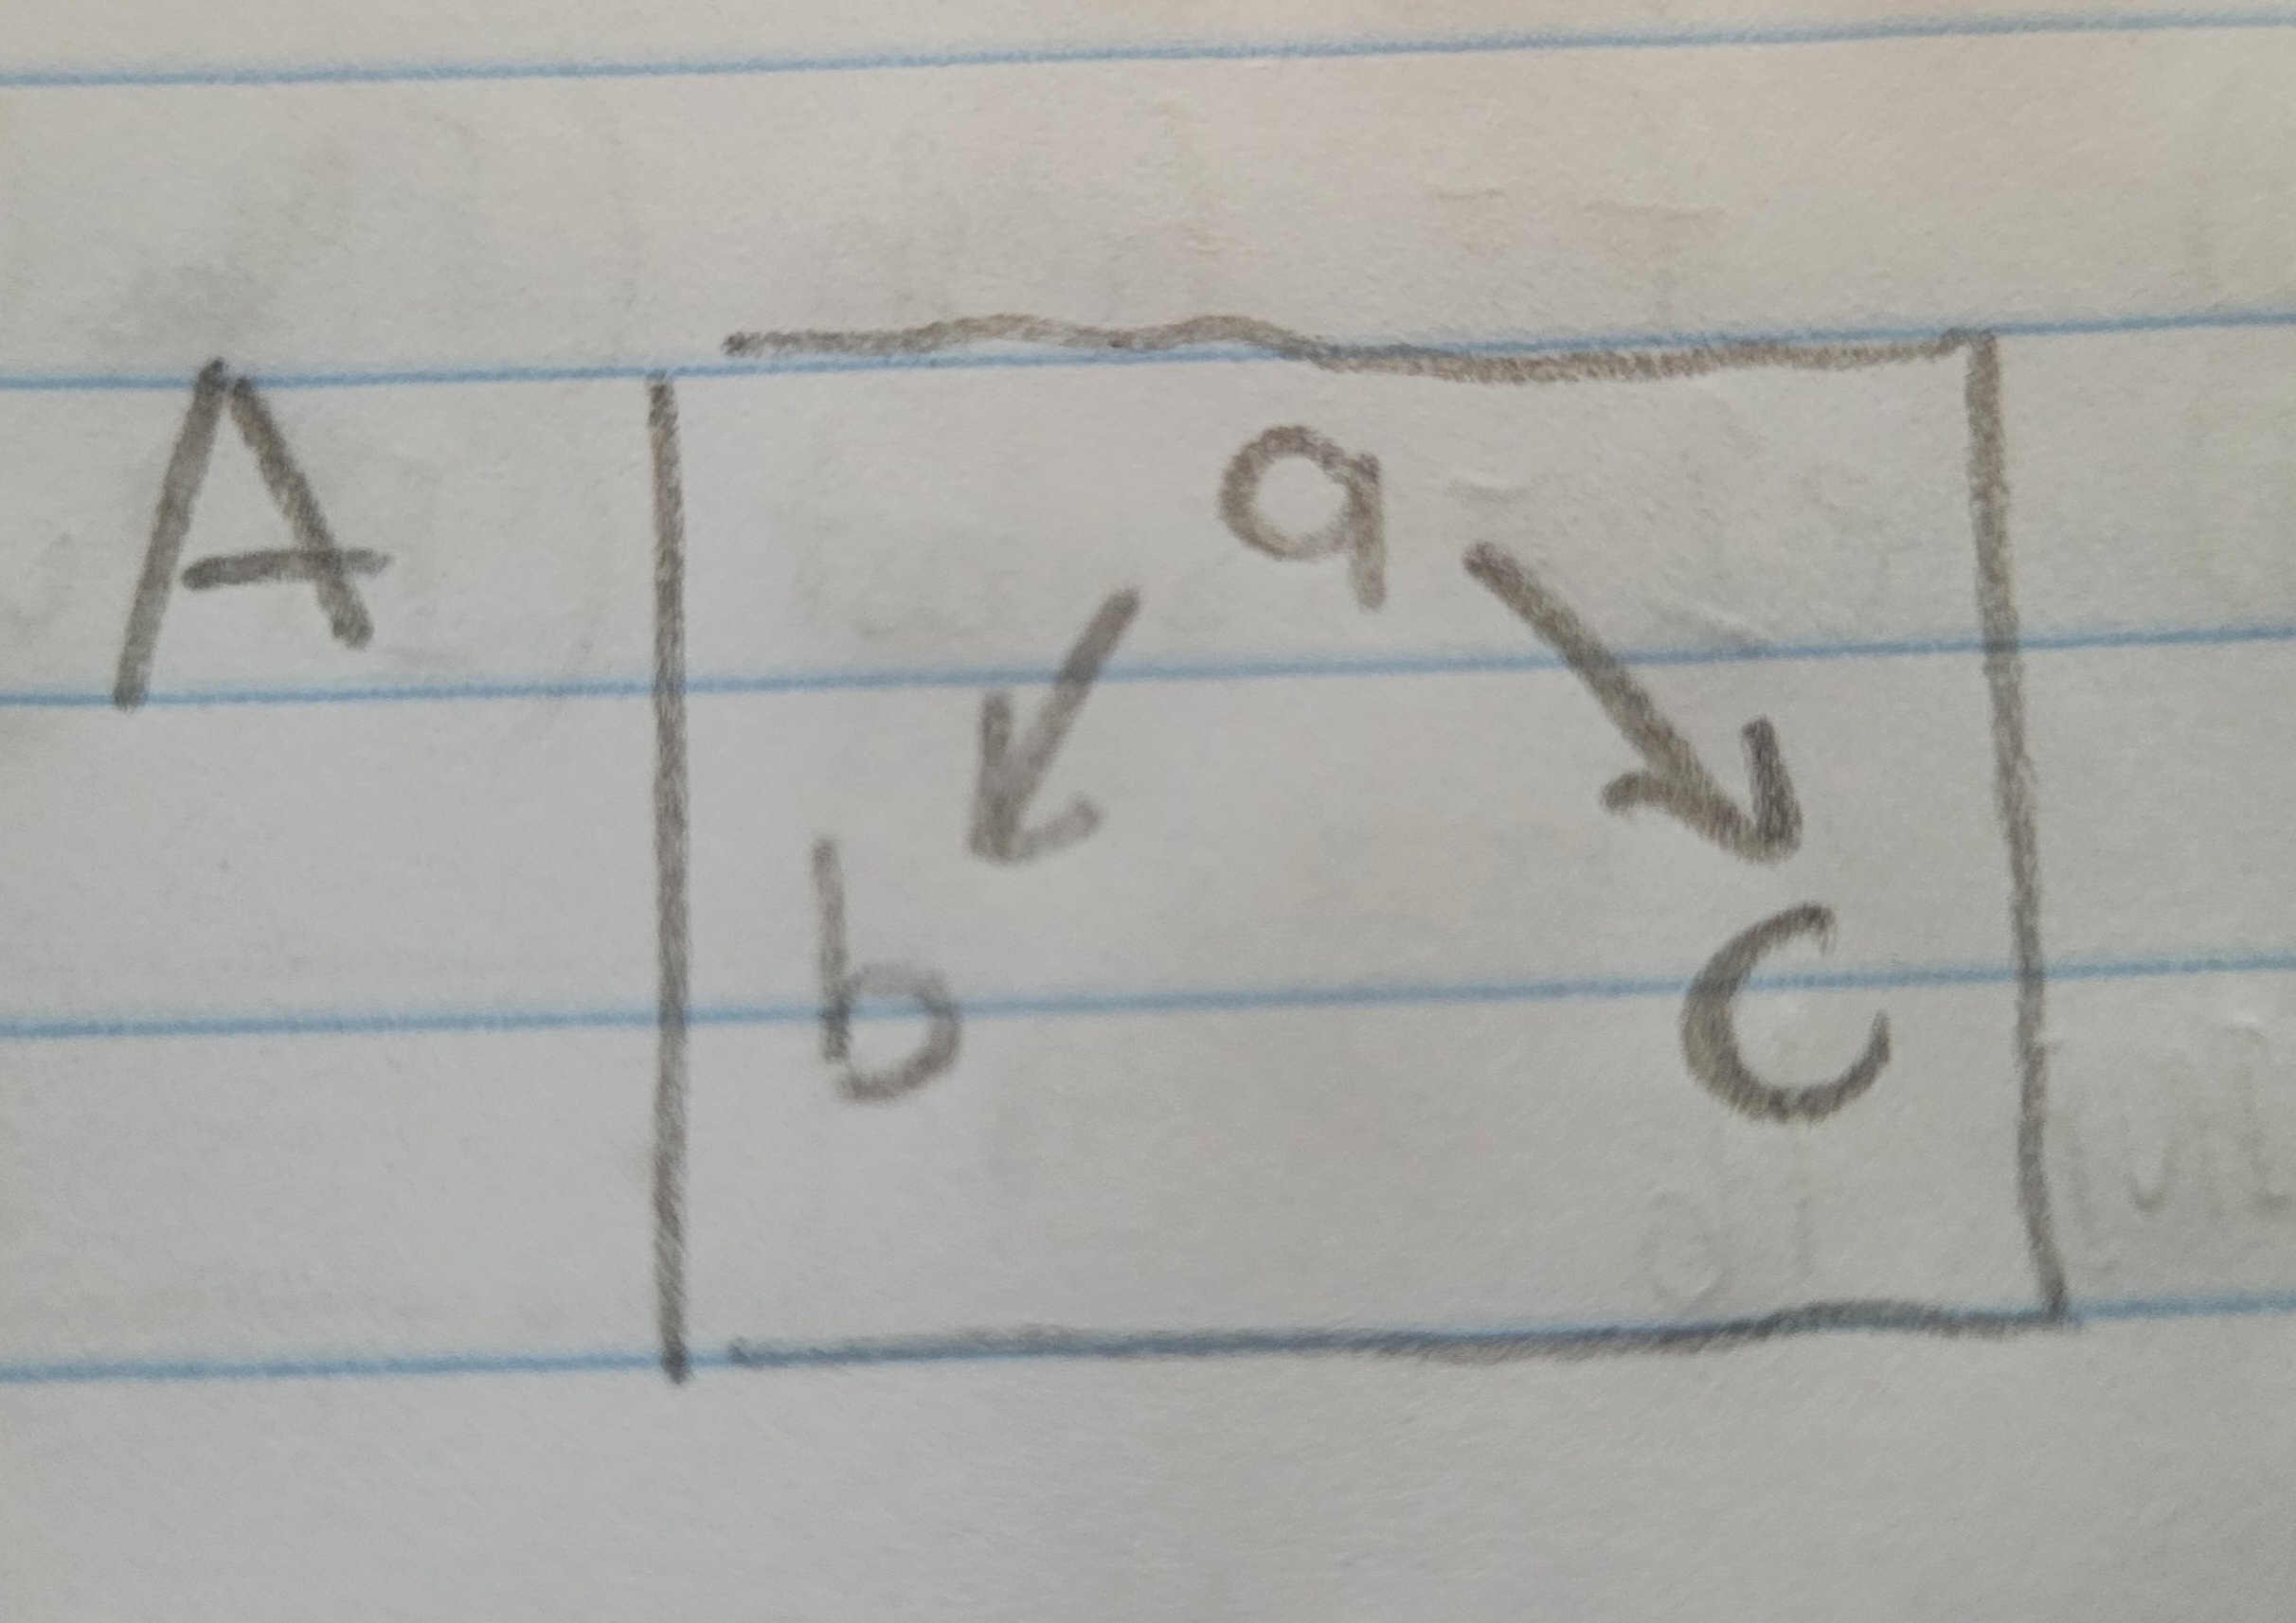 A
a
b c